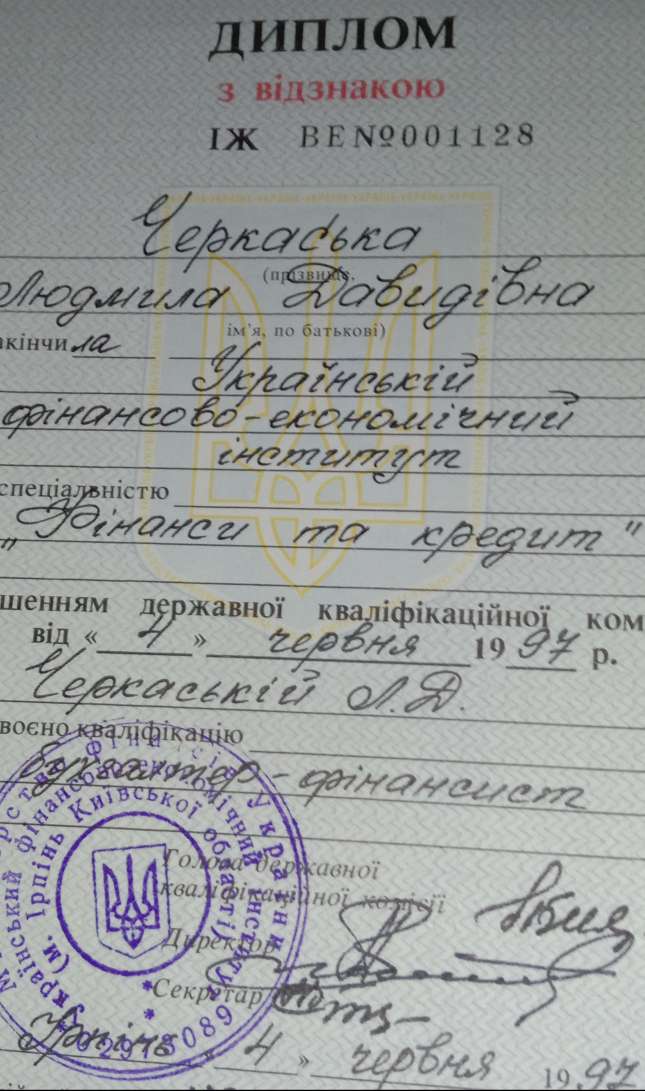 ДИПЛОМ
з відзнакою
ІЖ ВЕ№001128
Черкаська
(прізвище,
Людмила Давидівна
ім'я, по батькові)
акінчила
Український
фінансово-економічний
інститут
спеціальністю
"Фінанси та кредит"
шенням державної кваліфікаційної ком
від «4» червня 1997 р.
Черкаській Л.Д.
воєно кваліфікацію
бухгалтер-фінансист
Голова державної
кваліфікаційної комісії
Директор
Секретар
Ірпінь «4» червня 1997
Український фінансово-економічний інститут
(м. Ірпінь Київської області)